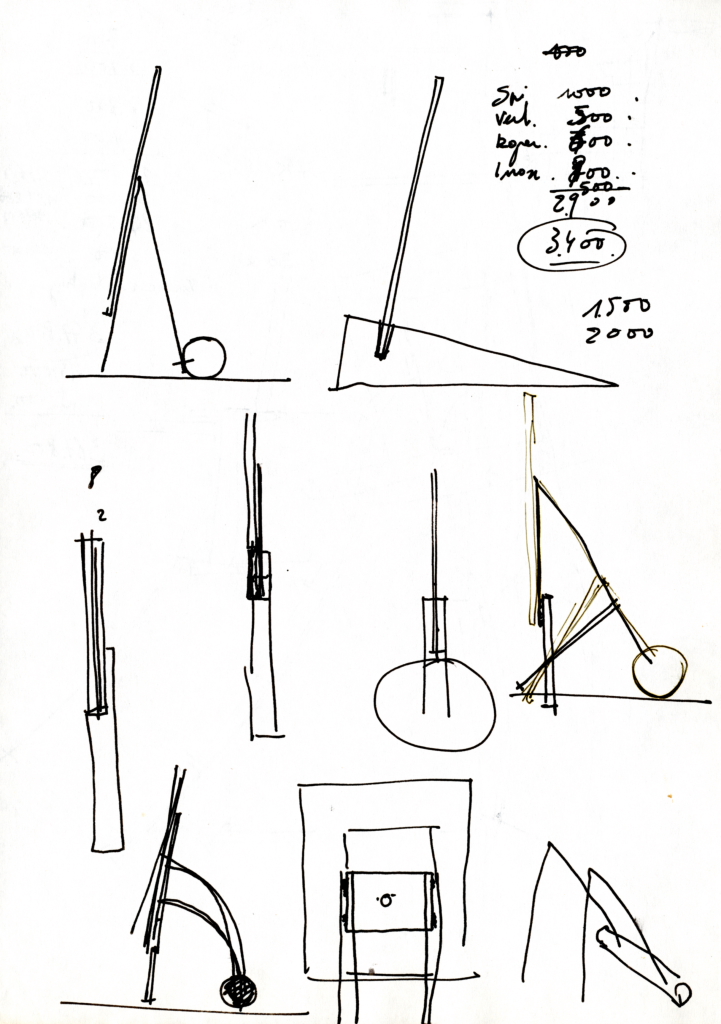 400
Spi 1000 .
Verl. 500 .
koper. 600 .
Inox . 800 . .
500
2900
3.400.
1.500
2000
2